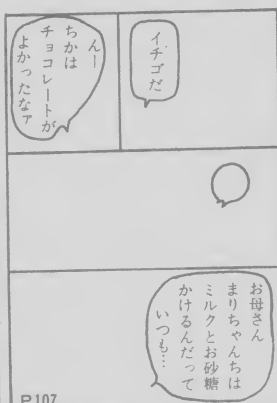 イチゴだ
んー
ちかは
チョコレートが
よかったなァ
お母さん
まりちゃんちは
ミルクとお砂糖
かけるんだって
いつも…
P107